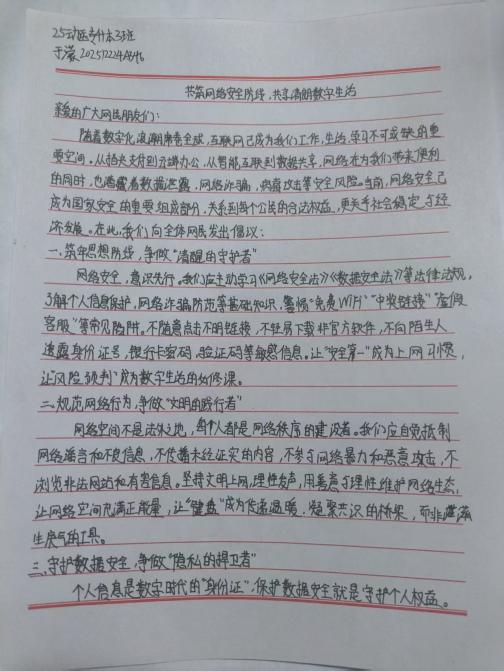 25动医专升本3班
于濛 20251222414846
共筑网络安全防线，共享清朗数字生活
亲爱的广大网民朋友们：
随着数字化浪潮席卷全球，互联网已成为我们工作、生活、学习不可或缺的重
要空间。从指尖支付到云端办公，从智能互联到数据共享，网络在为我们带来便利
的同时，也潜藏着数据泄露、网络诈骗、病毒攻击等安全风险。当前，网络安全已
成为国家安全的重要组成部分，关系到每个公民的合法权益，更关乎社会稳定与经
济发展。在此，我们向全体网民发出倡议：
一、筑牢思想防线，争做“清醒的守护者”
网络安全，意识先行。我们应主动学习《网络安全法》《数据安全法》等法律法规，
了解个人信息保护、网络诈骗防范等基础知识，警惕“免费WiFi”“中奖链接”“虚假
客服”等常见陷阱。不随意点击不明链接，不轻易下载非官方软件，不向陌生人
透露身份证号、银行卡密码、验证码等敏感信息。让“安全第一”成为上网习惯，
让“风险预判”成为数字生活的必修课。
二、规范网络行为，争做“文明的践行者”
网络空间不是法外之地，每个人都是网络秩序的建设者。我们应自觉抵制
网络谣言和不良信息，不传播未经证实的内容，不参与网络暴力和恶意攻击，不
浏览非法网站和有害信息。坚持文明上网，理性发声，用善意与理性维护网络生态，
让网络空间充满正能量，让“键盘”成为传递温暖，凝聚共识的桥梁，而非
生戾气的工具。
三、守护数据安全，争做“隐私的捍卫者”
个人信息是数字时代的“身份证”，保护数据安全就是守护个人权益。